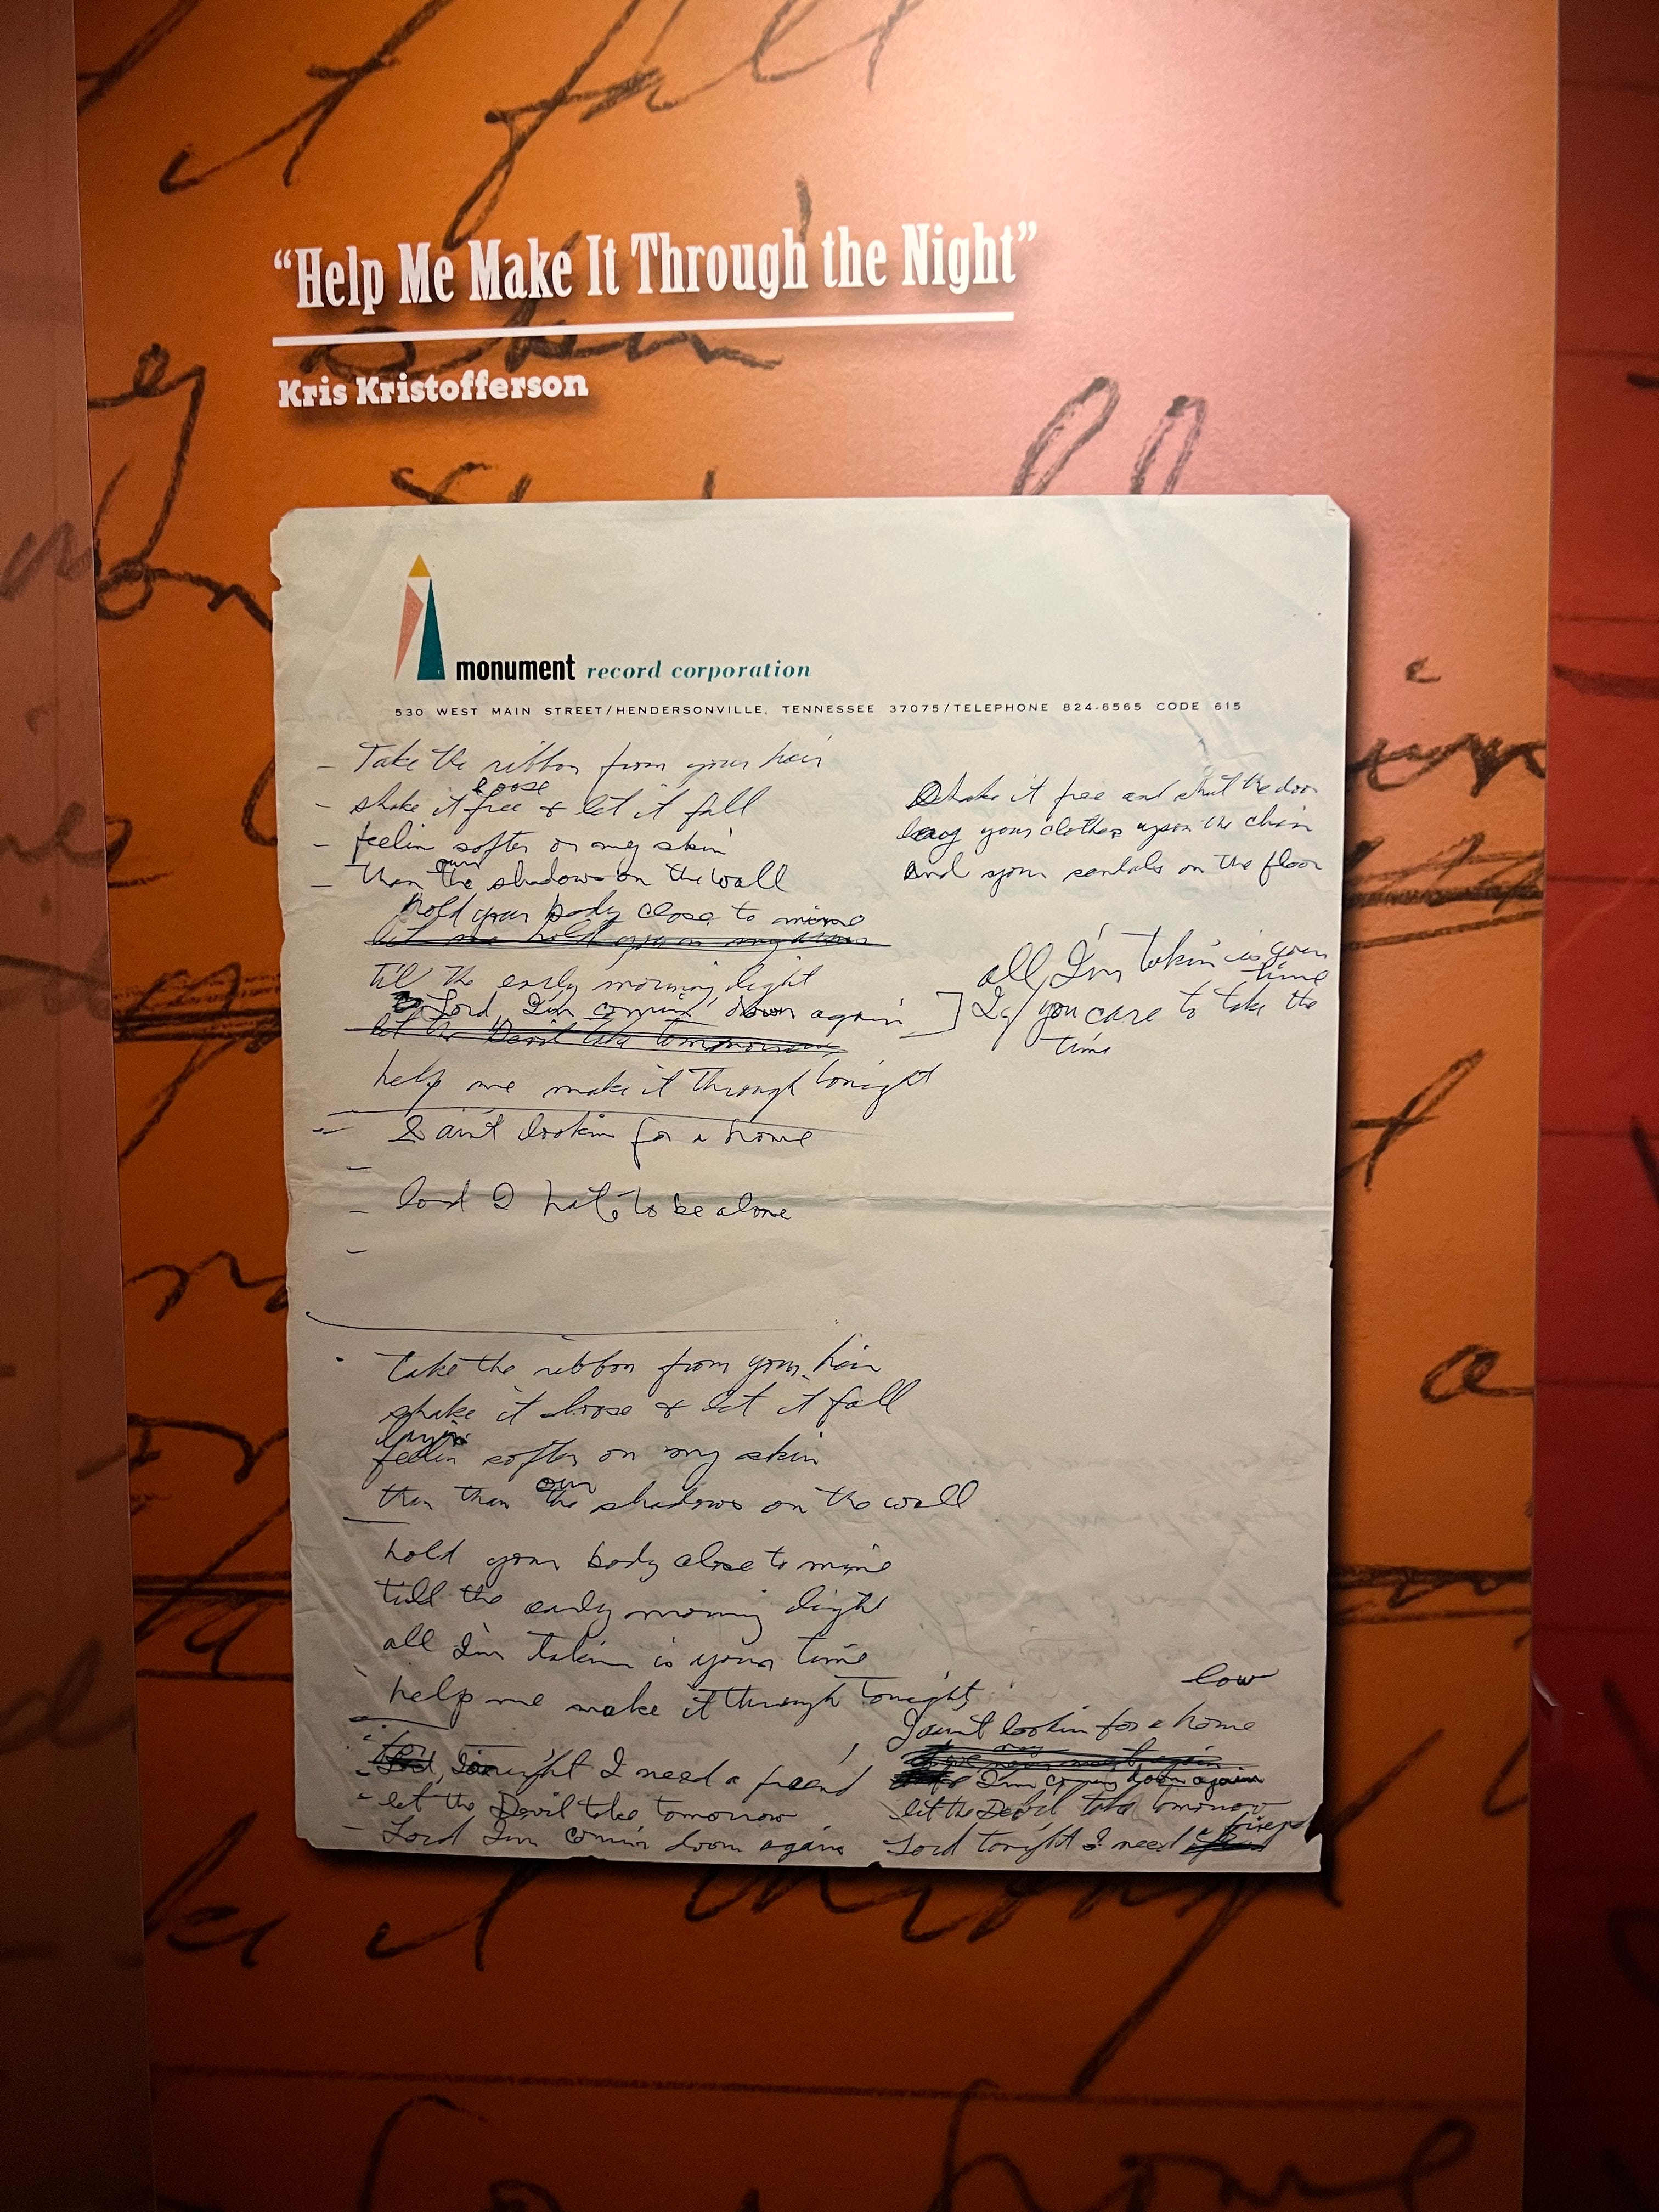 “Help Me Make It Through the Night”
Kris Kristofferson
monument record corporation
530 WEST MAIN STREET/HENDERSONVILLE, TENNESSEE 37075/TELEPHONE 824-6565 CODE 615
- Take the ribbon from your hair
loose
- shake it free & let it fall
- feelin softer on my skin
our
- than the shadows on the wall
hold your body close to mine
let me hold you in my arms
til the early morning light
Lord, I'm comin' down again ]
let the Devil take tomorrow
help me make it through tonight
I ain't lookin for a home
lord I hate to be alone
Shake it free and shut the door
lay your clothes upon the chair
And your sandals on the floor
all I'm takin is your
time
If you care to take the
time
Take the ribbon from your hair
shake it loose & let it fall
layin
feelin softer on my skin
our
than than the shadows on the wall
hold your body close to mine
till the early morning light
all I'm takin is your time
help me make it through tonight
tonight I need a friend
- let the Devil take tomorrow
- Lord I'm comin down again
low
I ain't lookin for a home
I'm comin down again
let the Devil take tomorrow
friend
Lord tonight I need a